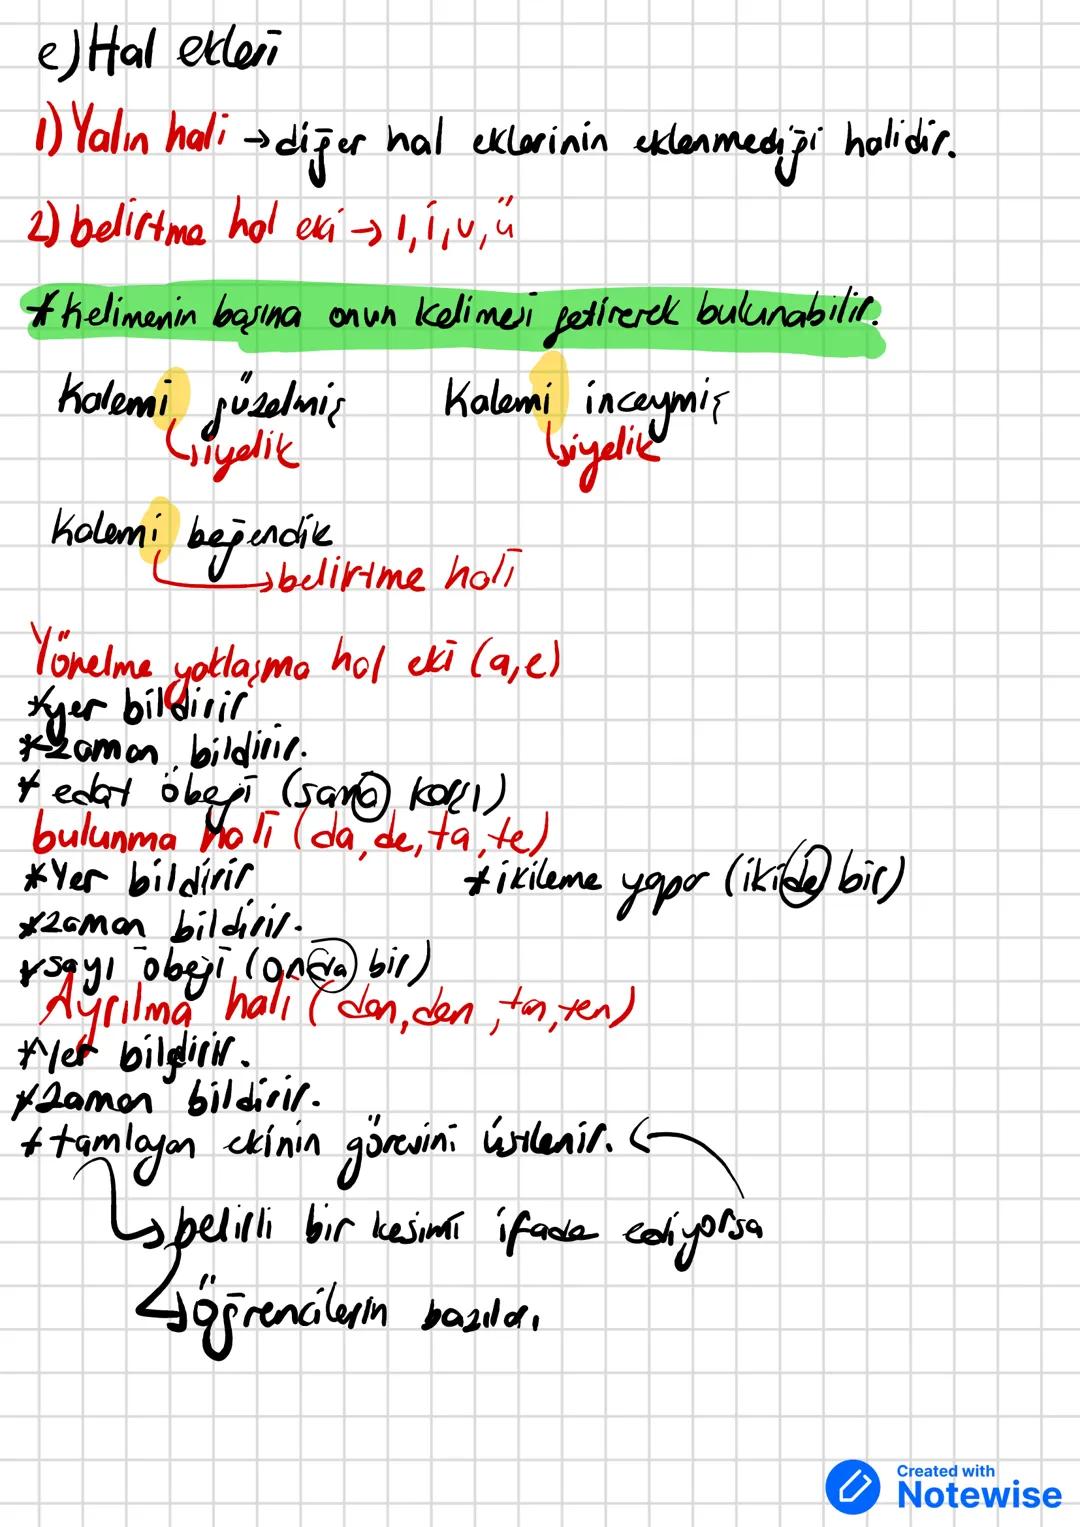 e) Hal ekleri
1) Yalın hali → diğer hal eklerinin eklenmediği halidir.
2) belirtme hal eki → ı, i, u, ü
* Kelimenin başına onun kelimesi getirerek bulunabilir.
Kalemi güzelmiş Kalemi inceymiş
↳iyelik ↳iyelik
Kalemi beğendik
→belirtme hali
Yönelme yaklaşma hal eki (a,e)
*yer bildirir
*zaman bildirir.
* edat öbeği (sana karşı)
bulunma hali (da, de, ta, te)
*Yer bildirir *ikileme yapar (ikide bir)
*zaman bildirir.
*sayı öbeği (onda bir)
Ayrılma hali (dan, den, tan, ten)
*Yer bildirir.
*Zaman bildirir.
*tamlayan ekinin görevini üstlenir.
↳belirli bir kesimi ifade ediyorsa
↳Öğrencilerin bazıları
Created with
Notewise